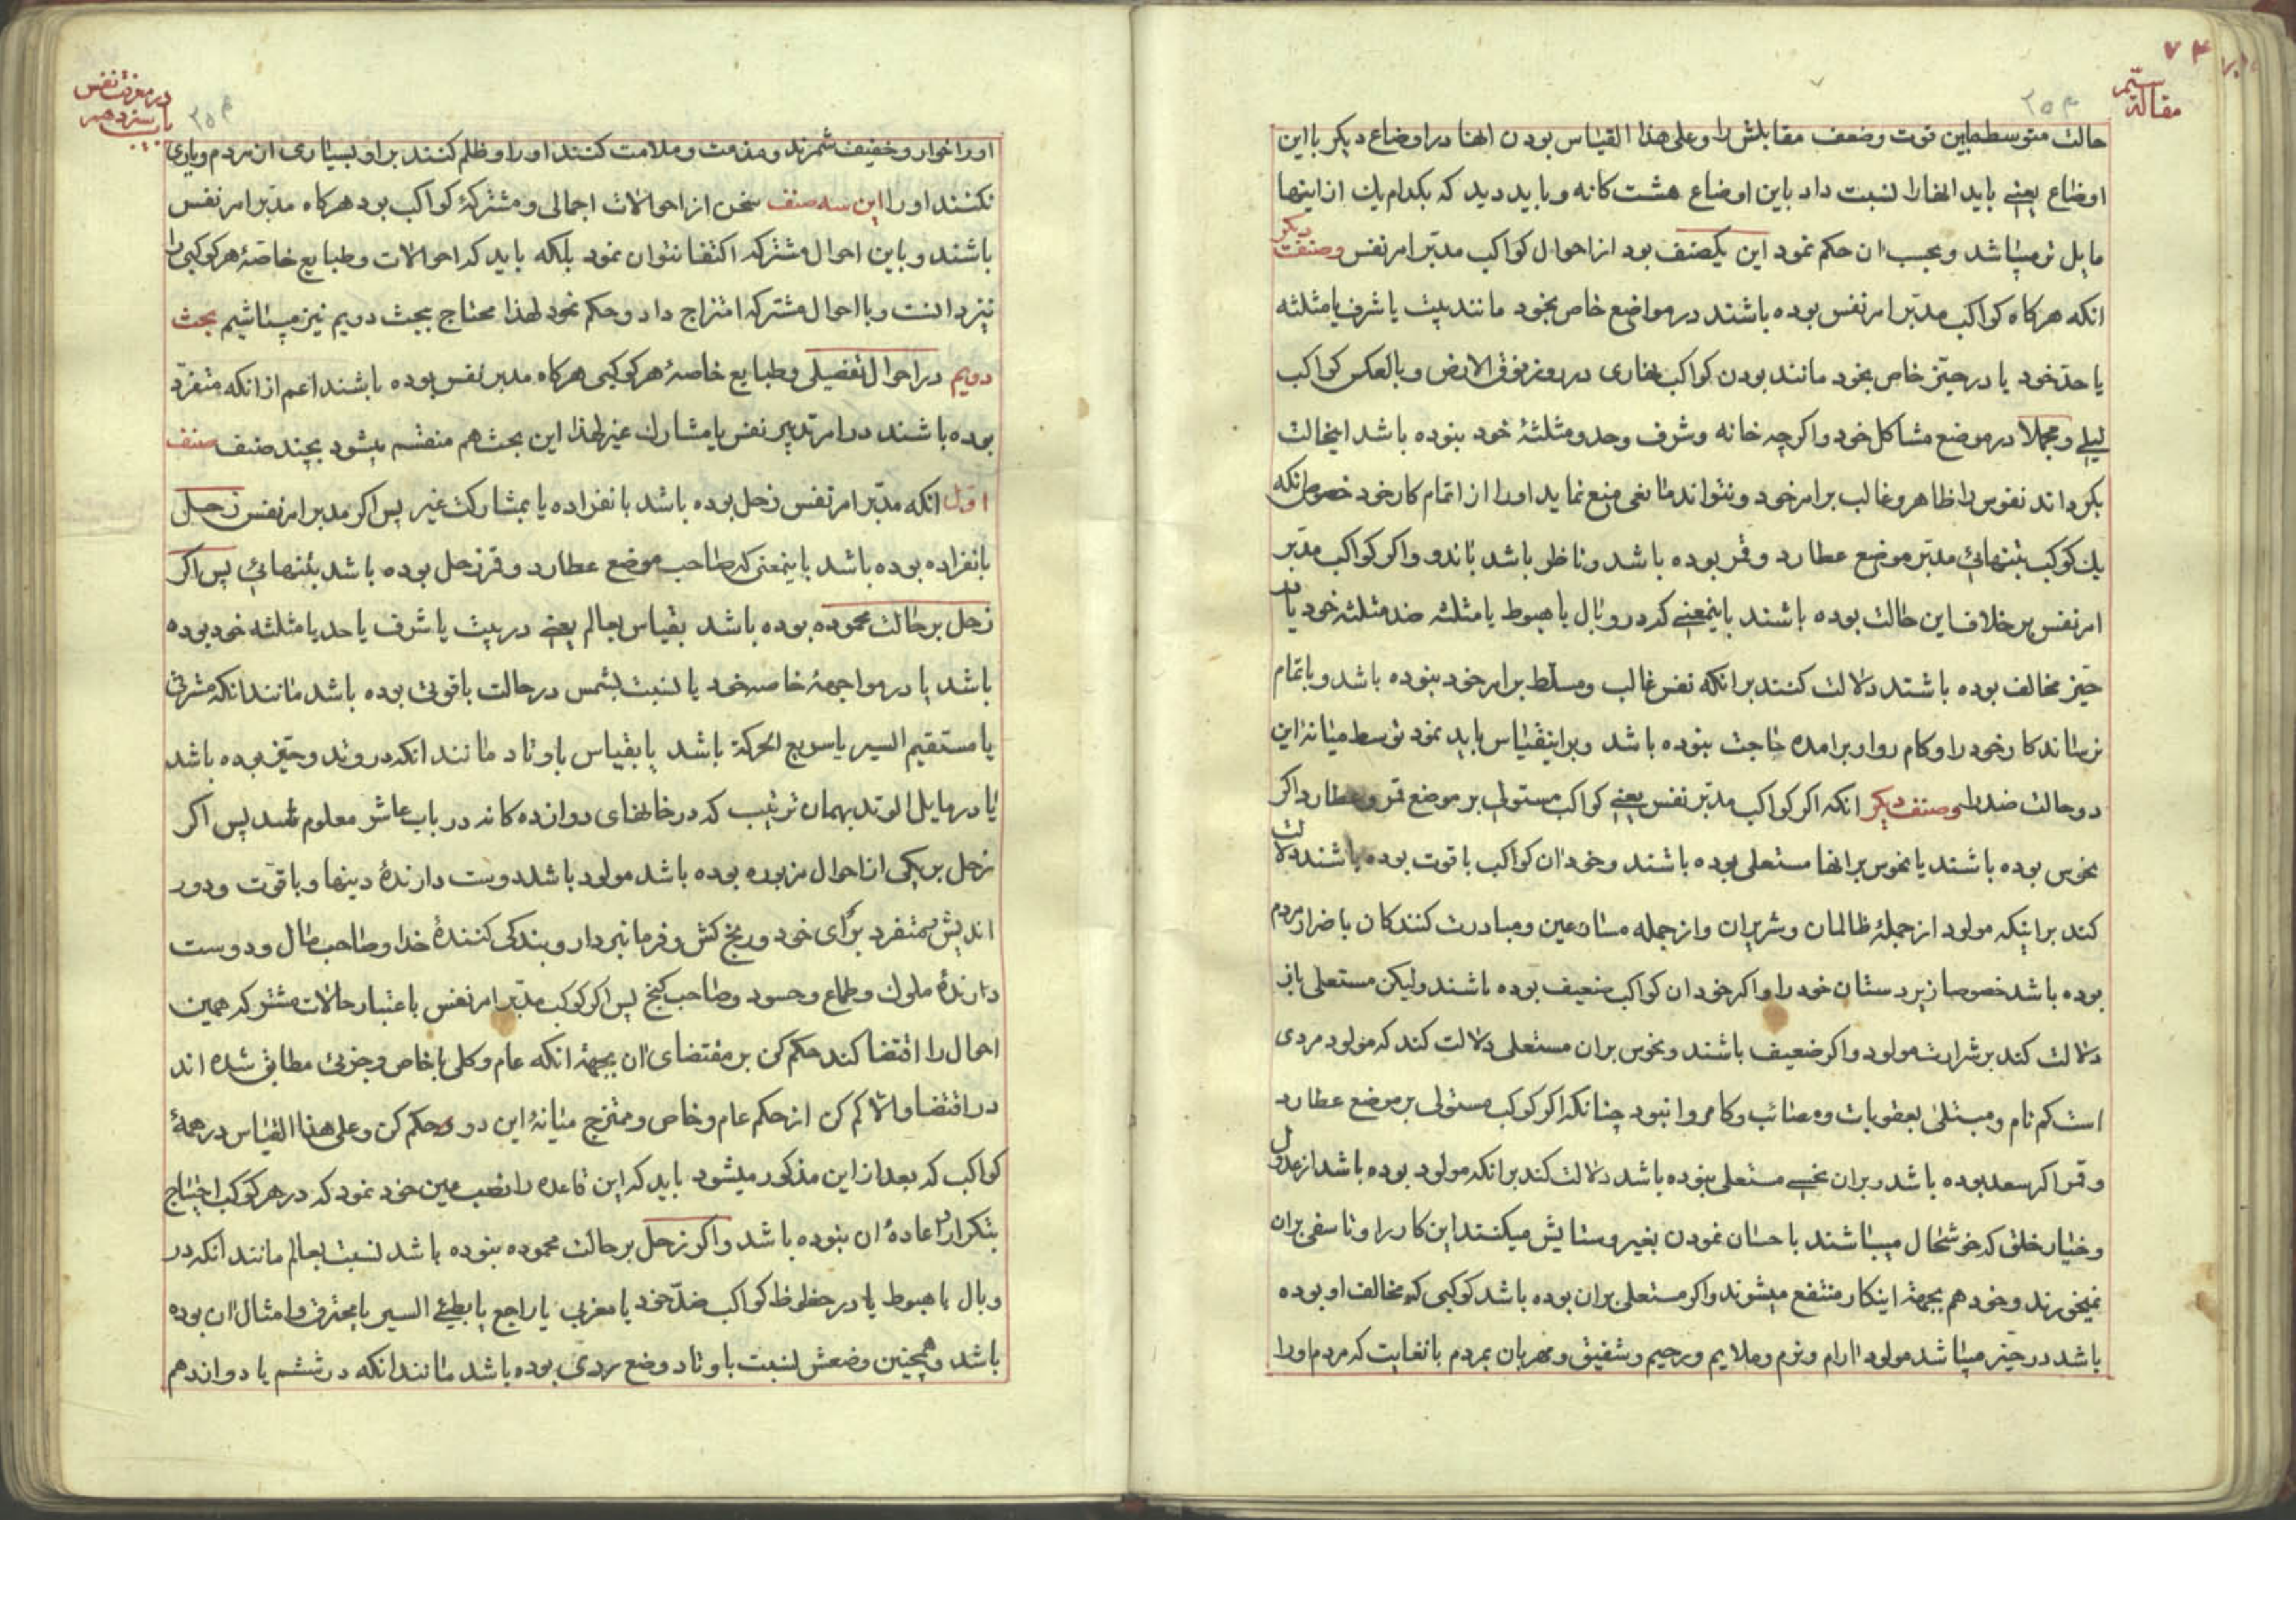 ۷۴
مقالهٔ سیّم
۲۵۴
حالت متوسط مابین قوت وضعف مقابلش را وعلی هذا القیاس بودن انها در اوضاع دیکر با این
اوضاع یعنی باید انها را نسبت داد باین اوضاع هشت کانه و باید دید که بکدام یك از اینها
مایل تر میباشد وبحسب ان حکم نمود این یکصنف بود از احوال کواکب مدبّر امر نفس وصنف دیکر
انکه هرکاه کواکب مدبّر امر نفس بوده باشند در مواضع خاص بخود مانند بیت یا شرف یا مثلثه
یا حدّ خود یا در حیّز خاص بخود مانند بودن کواکب نهاری در روز فوق الارض وبالعکس کواکب
لیلی ومجملا در موضع مشاکل خود واکرچه خانه وشرف وحد ومثلثهٔ خود نبوده باشد اینحالت
بکرداند نفوس را ظاهر وغالب بر امر خود ونتواند مانعی منع نماید او را از اتمام کار خود خصوص انکه
یك کوکب بتنهائی مدبّر موضع عطارد وقمر بوده باشد وناظر باشد باندو واکر کواکب مدبّر
امر نفس بر خلاف این حالت بوده باشند باینمعنی که در وبال یا هبوط یا مثلثه ضد مثلثه خود یا در
حیّز مخالف بوده باشند دلالت کنند بر انکه نفس غالب ومسلط بر امر خود نبوده باشد وباتمام
نرساند کار خود را وکام روا وبرامده حاجت نبوده باشد وبر اینقیاس باید نمود توسط میانه این
دو حالت ضد را وصنف دیکر انکه اکر کواکب مدبّر نفس یعنی کواکب مستولی بر موضع قمر وعطارد اکر
نحوس بوده باشند یا نحوس بر انها مستعلی بوده باشند وخود ان کواکب با قوت بوده باشند دلالت
کند بر اینکه مولود از جملهٔ ظالمان وشریران واز جمله مسارعین ومبادرت کنندکان باضرار مردم
بوده باشد خصوصا زیردستان خود را واکر خود ان کواکب ضعیف بوده باشند ولیکن مستعلی باز
دلالت کند بر شرارت مولود واکر ضعیف باشند ونحوس بران مستعلی دلالت کند که مولود مردی
است کم نام ومبتلی بعقوبات ومصائب وکامروا نبود چنانکه اکر کوکب مستولی بر موضع عطارد
وقمر اکر سعد بوده باشد وبران نحسی مستعلی نبوده باشد دلالت کند بر انکه مولود بوده باشد از عدول
وخیار خلق که خوشحال میباشند باحسان نمودن بغیر وستایش میکنند این کار را وتاسفی بران
نمیخورند وخود هم بجهة اینکار منتفع میشوند واکر مستعلی بران بوده باشد کوکبی که مخالف او بوده
باشد در حیّز میباشد مولود ارام ونرم وملایم ورحیم وشفیق ومهربان بمردم بانغایت که مردم او را
در معرفت نفس
باب سیزدهم
۲۵۴
او را خوار وخفیف شمرند ومذمت وملامت کنند او را وظلم کنند بر او بسیاری ان مردم ویاری
نکنند او را این سه صنف سخن از احوالات اجمالی ومشترکهٔ کواکب بود هرکاه مدبّر امر نفس
باشند وباین احوال مشترکه اکتفا نتوان نمود بلکه باید که احوالات وطبایع خاصهٔ هر کوکبی را
نیز دانست وبا احوال مشترکه امتزاج داد وحکم نمود لهذا محتاج ببحث دویم نیز میباشیم بحث
دویم در احوال تفصیلی وطبایع خاصهٔ هر کوکبی هرکاه مدبر نفس بوده باشند اعم از انکه متفرّد
بوده باشند در امر تدبیر نفس یا مشارك غیر لهذا این بحث هم منقسم میشود بچند صنف صنف
اوّل انکه مدبّر امر نفس زحل بوده باشد بانفراده یا بمشارکت غیر پس اکر مدبر امر نفس زحل
بانفراده بوده باشد باینمعنی که صاحب موضع عطارد وقمر زحل بوده باشد بتنهائی پس اکر
زحل بر حالت محموده بوده باشد بقیاس بعالم یعنی در بیت یا شرف یا حد یا مثلثه خود بوده
باشد یا در مواجههٔ خاصه خود یا نسبت بشمس در حالت باقوتی بوده باشد مانند انکه مشرقی
یا مستقیم السیر یا سریع الحرکة باشد یا بقیاس باوتاد مانند انکه در وتد وحیّز بوده باشد
یا در مایل الوتد بهمان ترتیب که در خانهای دوازده کانه در باب عاشر معلوم شد پس اکر
زحل بر یکی از احوال مزبوره بوده باشد مولود باشد دوست دارندهٔ دینها وباقوت ودور
اندیش ومتفرد برای خود ورنج کش وفرمانبردار وبندکی کنندهٔ خدا وصاحب مال ودوست
دارندهٔ ملوك وطماع وحسود وصاحب کنج پس اکر کوکب مدبّر امر نفس باعتبار حالات مشترکه همین
احوال را اقتضا کند حکم کن بر مقتضای ان بجهة انکه عام وکلی با خاص وجزئی مطابق شده اند
در اقتضا والا کم کن از حکم عام وخاص وممتزج میانهٔ این دو حکم کن وعلی هذا القیاس در همهٔ
کواکب که بعد از این مذکور میشود باید که این قاعده را نصب عین خود نمود که در هر کوکب احتیاج
بتکرار واعادهٔ ان نبوده باشد واکر زحل بر حالت محموده نبوده باشد نسبت بعالم مانند انکه در
وبال یا هبوط یا در حظوظ کواکب ضدّ خود یا مغربی یا راجع یا بطیئ السیر یا محترق وامثال ان بوده
باشد وهمچنین وضعش نسبت باوتاد وضع ردی بوده باشد مانند انکه در ششم یا دوازدهم